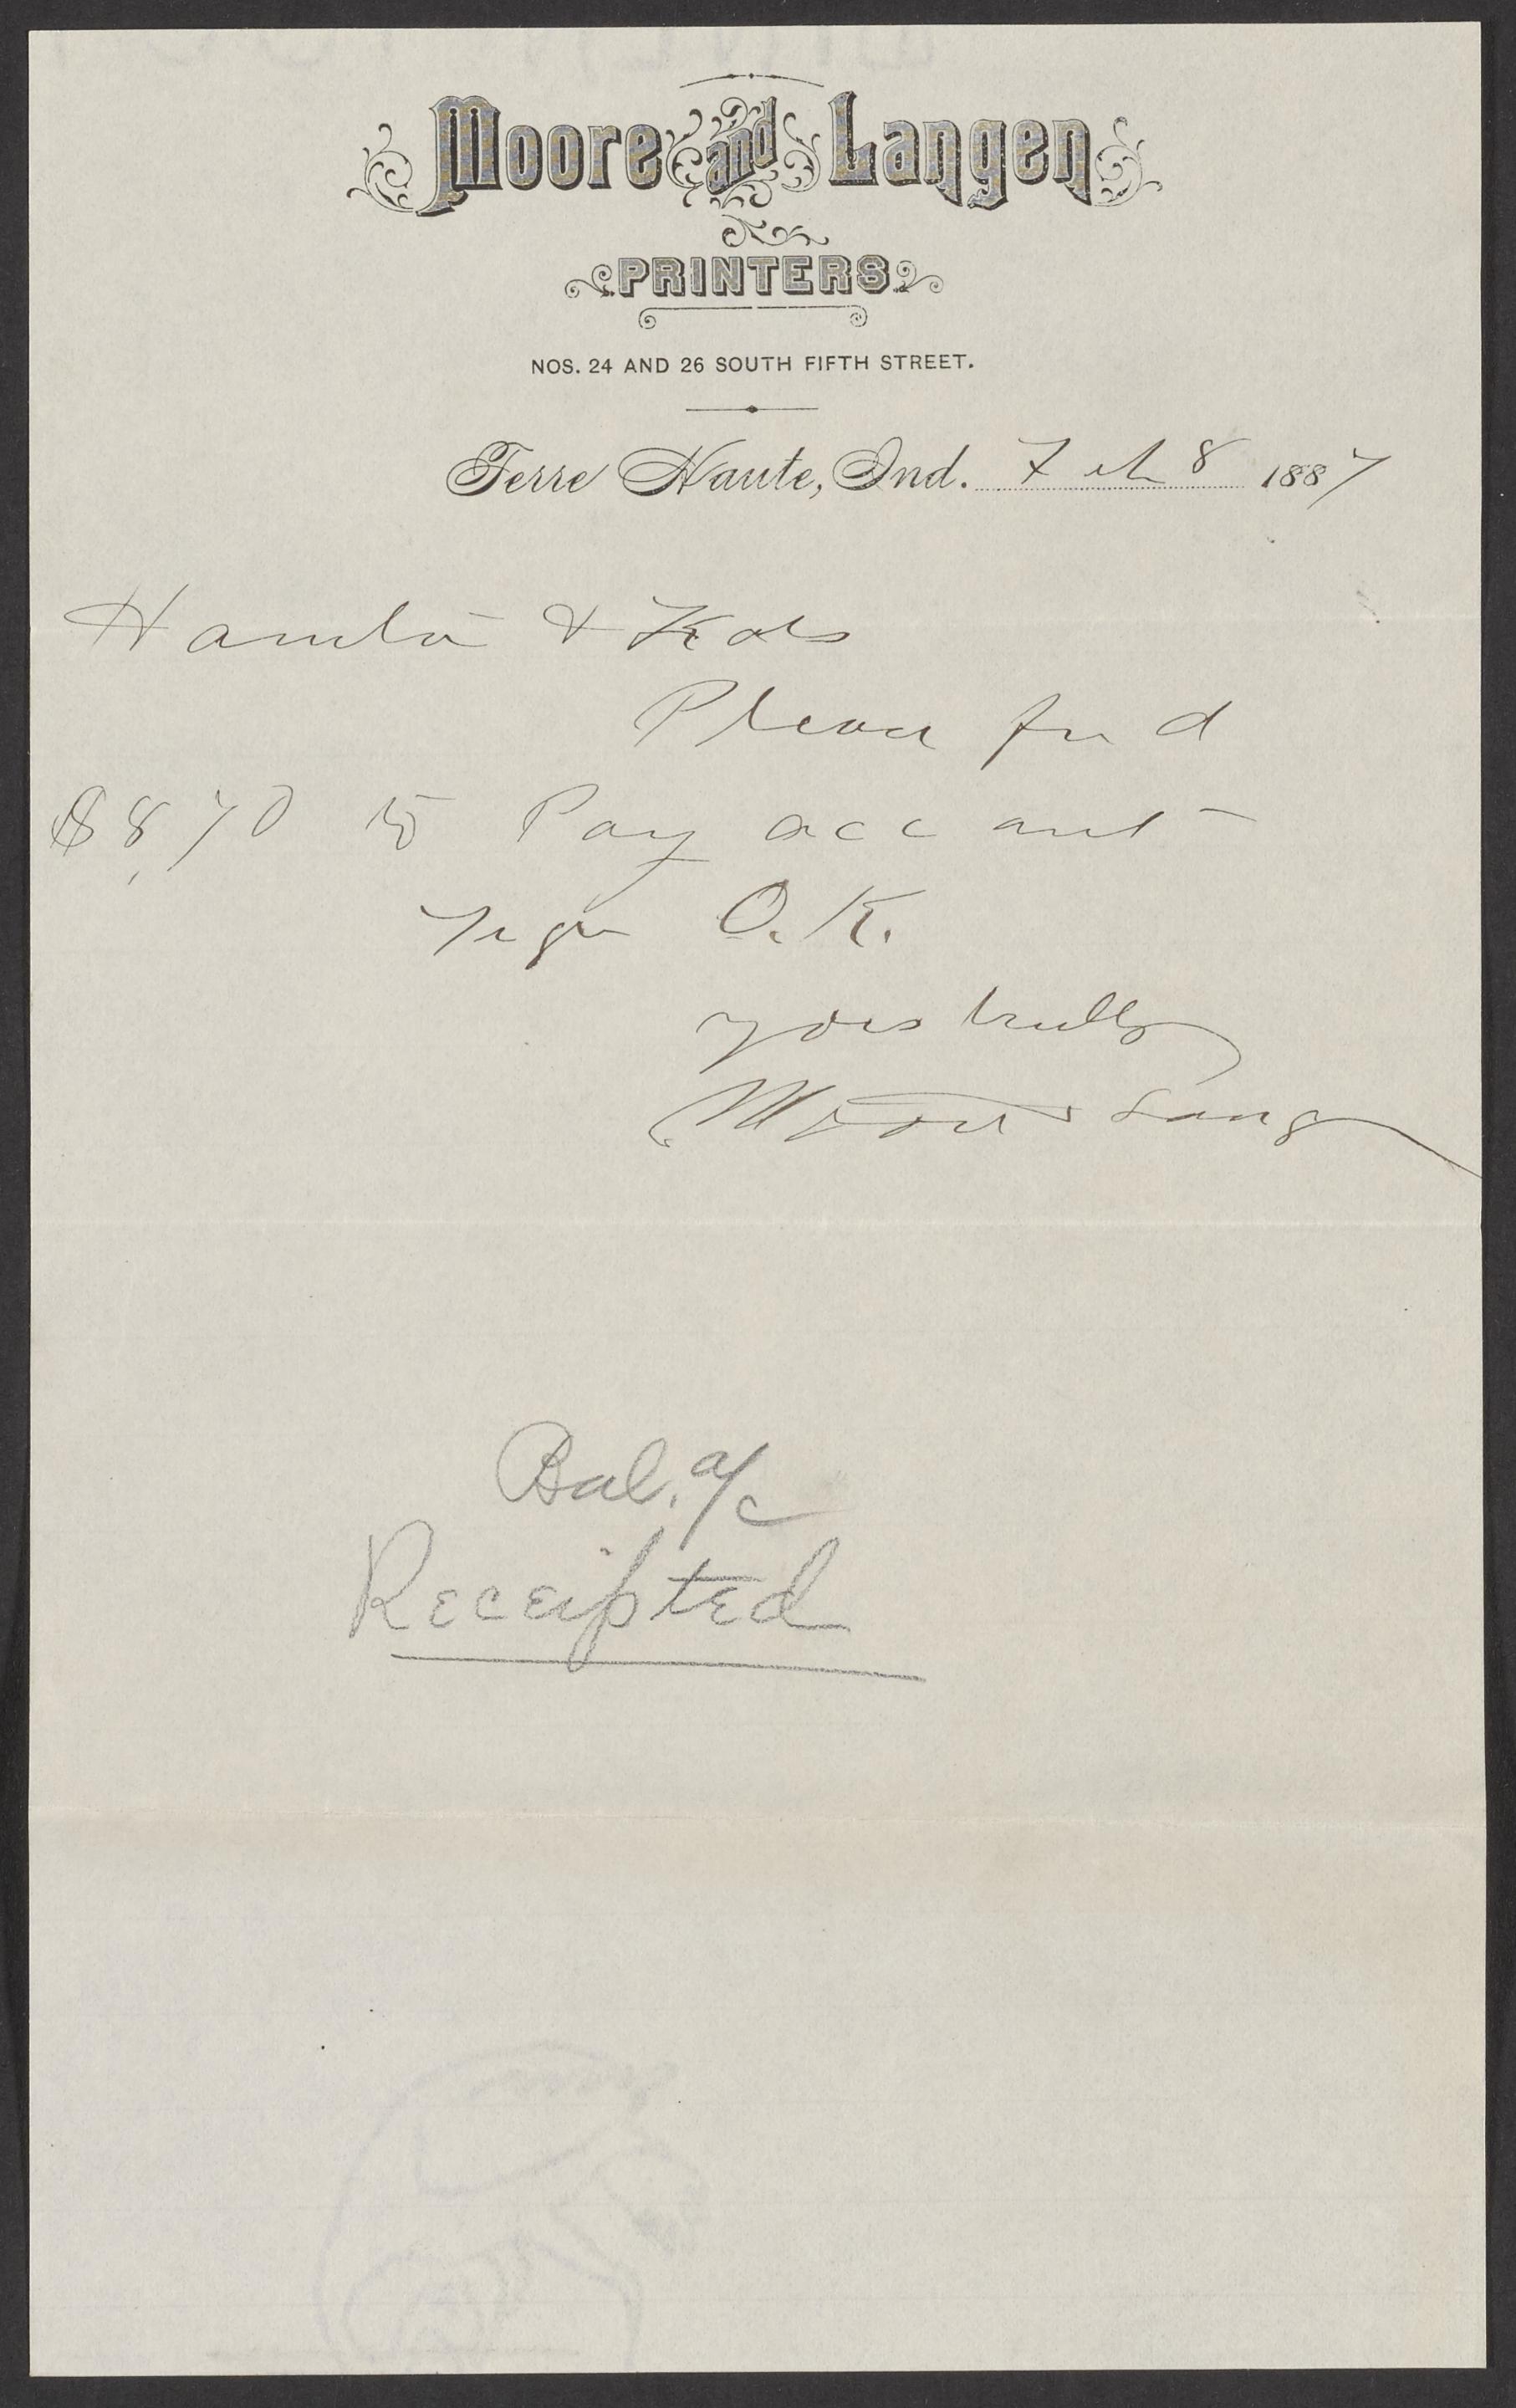 Moore and Langen
PRINTERS
NOS. 24 AND 26 SOUTH FIFTH STREET.
Terre Haute, Ind. Feb 8 1887
Hamilton &
Please find
$8.70 to Pay account
O.K.
yours truly
Moore & Langen
Bal. a/c
Receipted